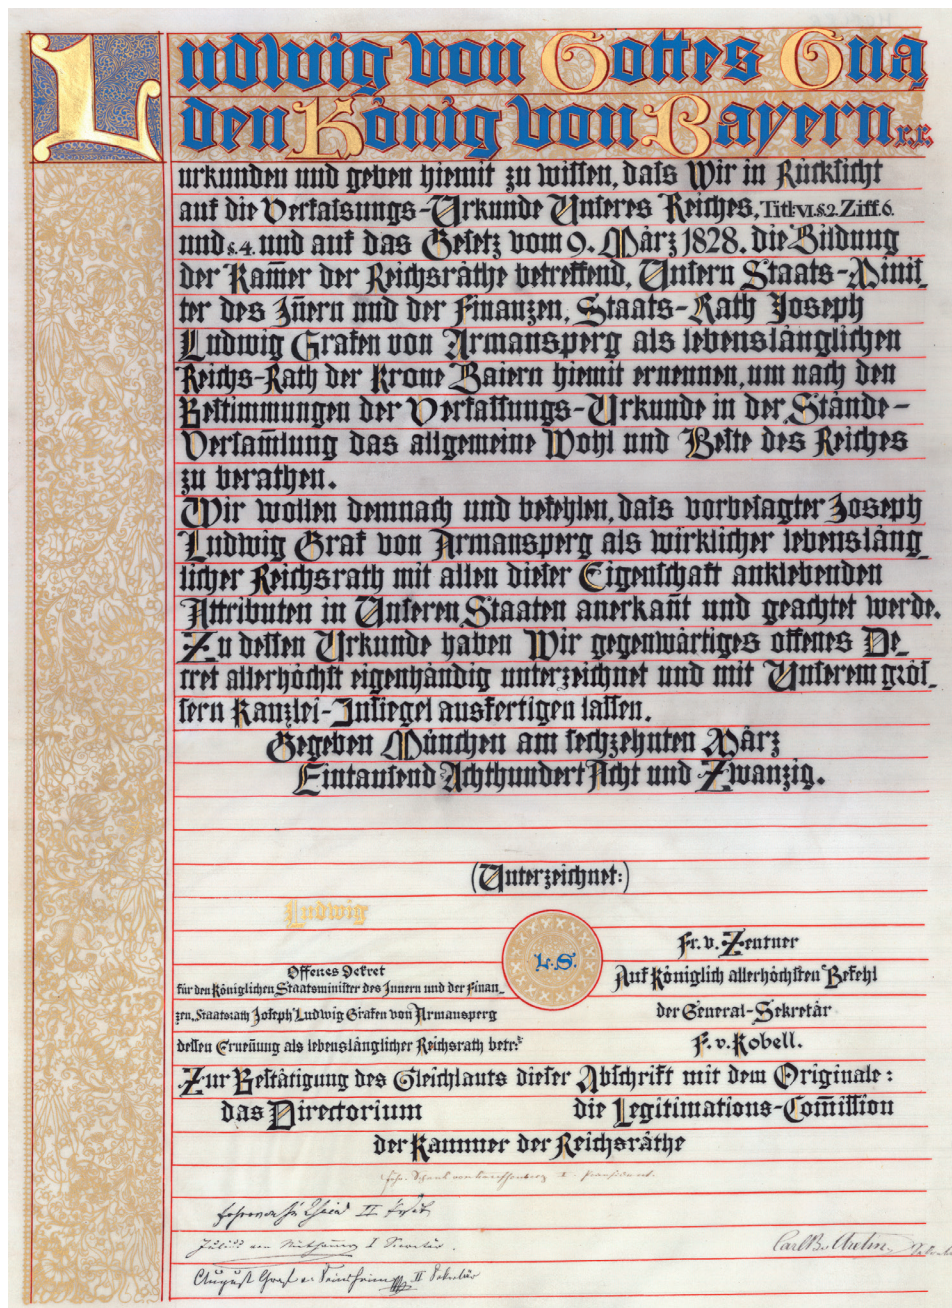 Ludwig von Gottes Gna
den König von Bayern r.r.
urkunden und geben hiemit zu wissen, daſs Wir in Rücksicht
auf die Verfaſsungs-Urkunde Unseres Reiches, Titl: VI. §. 2. Ziff. 6.
und §. 4. und auf das Gesetz vom 9. März 1828. die Bildung
der Kam̄er der Reichsräthe betreffend, Unsern Staats-Minis-
ter des Jn̄ern und der Finanzen, Staats-Rath Joseph
Ludwig Grafen von Armansperg als lebenslänglichen
Reichs-Rath der Krone Baiern hiemit ernennen, um nach den
Bestimmungen der Verfassungs-Urkunde in der Stände-
Versam̄lung das allgemeine Wohl und Beste des Reiches
zu berathen.
Wir wollen demnach und befehlen, daſs vorbesagter Joseph
Ludwig Graf von Armansperg als wirklicher lebensläng-
licher Reichsrath mit allen dieser Eigenschaft anklebenden
Attributen in Unseren Staaten anerkan̄t und geachtet werde.
Zu dessen Urkunde haben Wir gegenwärtiges offenes De-
cret allerhöchst eigenhändig unterzeichnet und mit Unserem grös-
sern Kanzlei-Insiegel ausfertigen lassen.
Gegeben München am sechzehnten März
Eintausend Achthundert Acht und Zwanzig.
(Unterzeichnet:)
Ludwig
L. S.
Fr. v. Zentner
Offenes Dekret
für den Königlichen Staatsminister des Innern und der Finan-
zen, Staatsrath Joseph Ludwig Grafen von Armansperg
dessen Ernen̄ung als lebenslänglicher Reichsrath betr:
Auf Königlich allerhöchsten Befehl
der General-Sekretär
F. v. Kobell.
Zur Bestätigung des Gleichlauts dieser Abschrift mit dem Originale:
das Directorium
die Legitimations-Com̄ission
der Kammer der Reichsräthe
II
I Secretär.
August Graf
II Sekretär